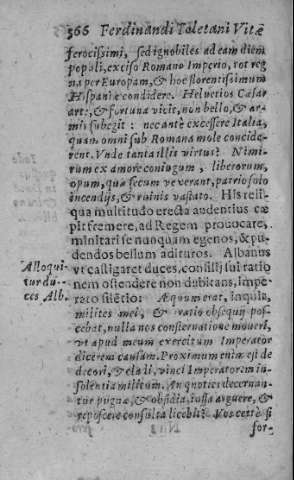 566 Ferdinandi Toletani Vitæ
ferocissimi, sed ignobiles ad eam diem
populi, exciso Romano Imperio, tot reg
na per Europam, & hoc florentissimum
Hispaniæ condidere. Helvetios Cæsar
arte, & fortuna vicit, non bello, & ar-
mis subegit: nec ante excessere Italia,
quam omni sub Romana mole concide-
rent. Vnde tanta illis virtus? Nimi-
rum ex amore coniugum, liberorum,
opum, quæ secum vexerant, patrio solo
incendijs, & ruinis vastato. His reli-
qua multitudo erecta audentius cæ
pit fremere, ad Regem provocare,
minitari se nunquam egenos, & pu-
dendos bellum adituros. Albanus
vt castigaret duces, consilij sui ratio
nem ostendere non dubitans, impe-
rato silentio: Æquum erat, inquit,
milites mei, & ratio obsequij pos-
cebat, nulla nos consternatione moveri,
vt apud meum exercitum Imperator
dicerem causam. Proximum enim est de
decori, & cladi, vinci Imperatorem in-
solentia militum. An quoties decernan-
tur pugnæ, & obsidia, iussa arguere, &
reposcere consulta licebit? Vos certè si
for-
Alloqui-
tur du-
ces Alb.